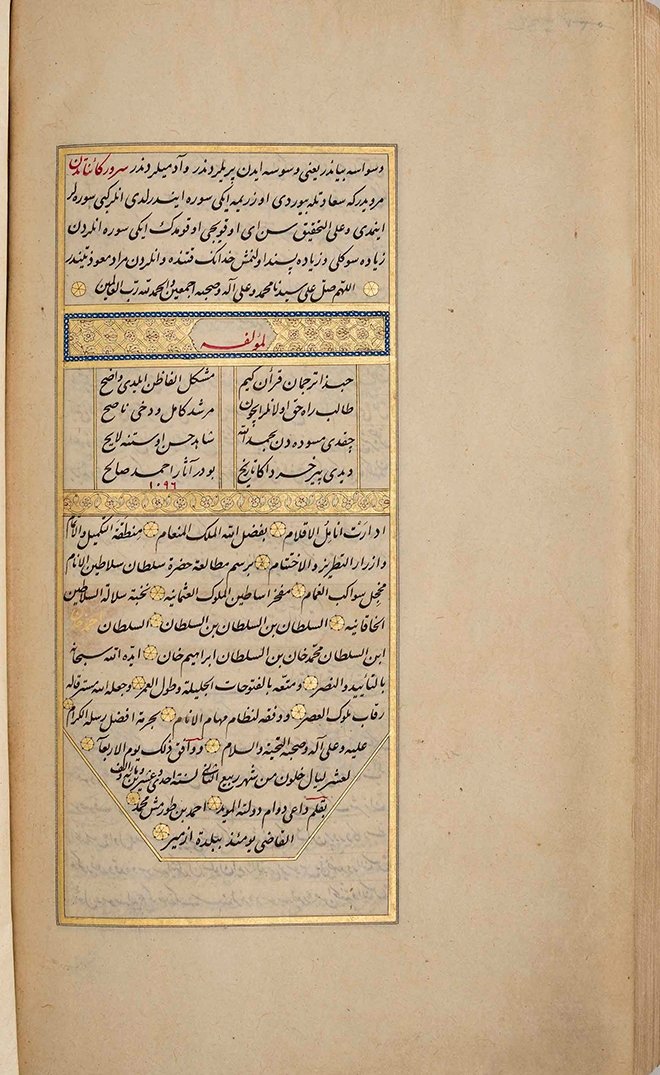 وسواسه بیاندر یعنی وسوسه ایدن پریلردندر وآدمیلردندر سرور کائناتدن
مرویدرکه سعادتله بیوردی اوزریمه ایکی سوره ایندرلدی انلر کبی سوره لر
ایندی وعلی التحقیق سن ای اوقویجی اوقومدك ایکی سوره انلردن
زیاده سوکلی وزیاده پسند اولنمش خدانك قتنده وانلردن مراد معوذتیندر
اللهم صل علی سیدنا محمد وعلی آله وصحبه اجمعین والحمد لله رب العالمین
لمؤلفه
حبذا ترجمان قرآن کیم مشکل الفاظن ایلدی واضح
طالب راه حق اولانلر ایچون مرشد کامل ودخی ناصح
چقدی مسوده دن بحمد الله شاهد حسن اوستنه لایح
دیدی پیر خرد اکا تاریخ بودر آثار احمد صالح
١٠٩٦
ادارت انامل الاقلام بفضل الله الملك المنعام منطقة التکمیل والاتمام
وازرار التطریز والاختتام برسم مطالعة حضرة سلطان سلاطین الانام
مخجل سواکب الغمام مفخر اساطین الملوك العثمانیه نخبة سلالة السلاطین
الخاقانیه السلطان بن السلطان بن السلطان السلطان
ابن السلطان محمد خان بن السلطان ابراهیم خان ایده الله سبحانه
بالتأیید والنصر ومتعه بالفتوحات الجلیلة وطول العمر وجعل الله مسترقاله
رقاب ملوك العصر ووفقه لنظام مهام الانام بحرمة افضل رسله الکرام
علیه وعلی آله وصحبه التحیة والسلام ووافق ذلك یوم الاربعآ
لعشر لیال خلون من شهر ربیع الثانی لسنة احدی وعشرین ومائه والف
بقلم داعی دوام دولته المؤید احمد بن طورمش محمد
القاضی یومئذ ببلدة ازمیر